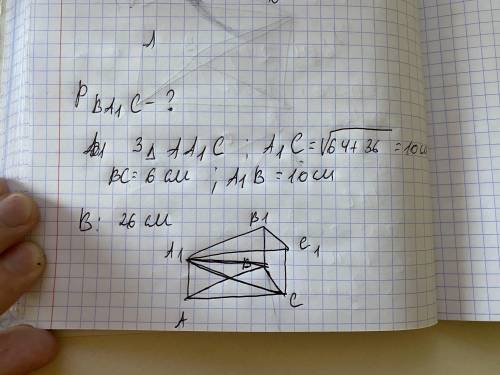 A
P BA1C - ?
З Δ AA1C ; A1C = √64+36 = 10см
BC = 6 см ; A1B = 10см
В: 26 см
B1
A1 C1
B
A C